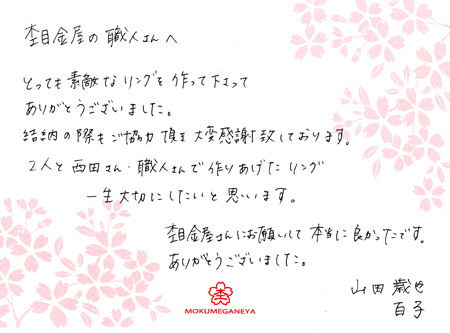 杢目金屋の職人さんへ
とっても素敵なリングを作って下さって
ありがとうございました。
結納の際もご協力頂き大変感謝致しております。
2人と西田さん・職人さんで作りあげたリング
一生大切にしたいと思います。
杢目金屋さんにお願いして本当に良かったです。
ありがとうございました。
山田
百子
杢
MOKUMEGANEYA